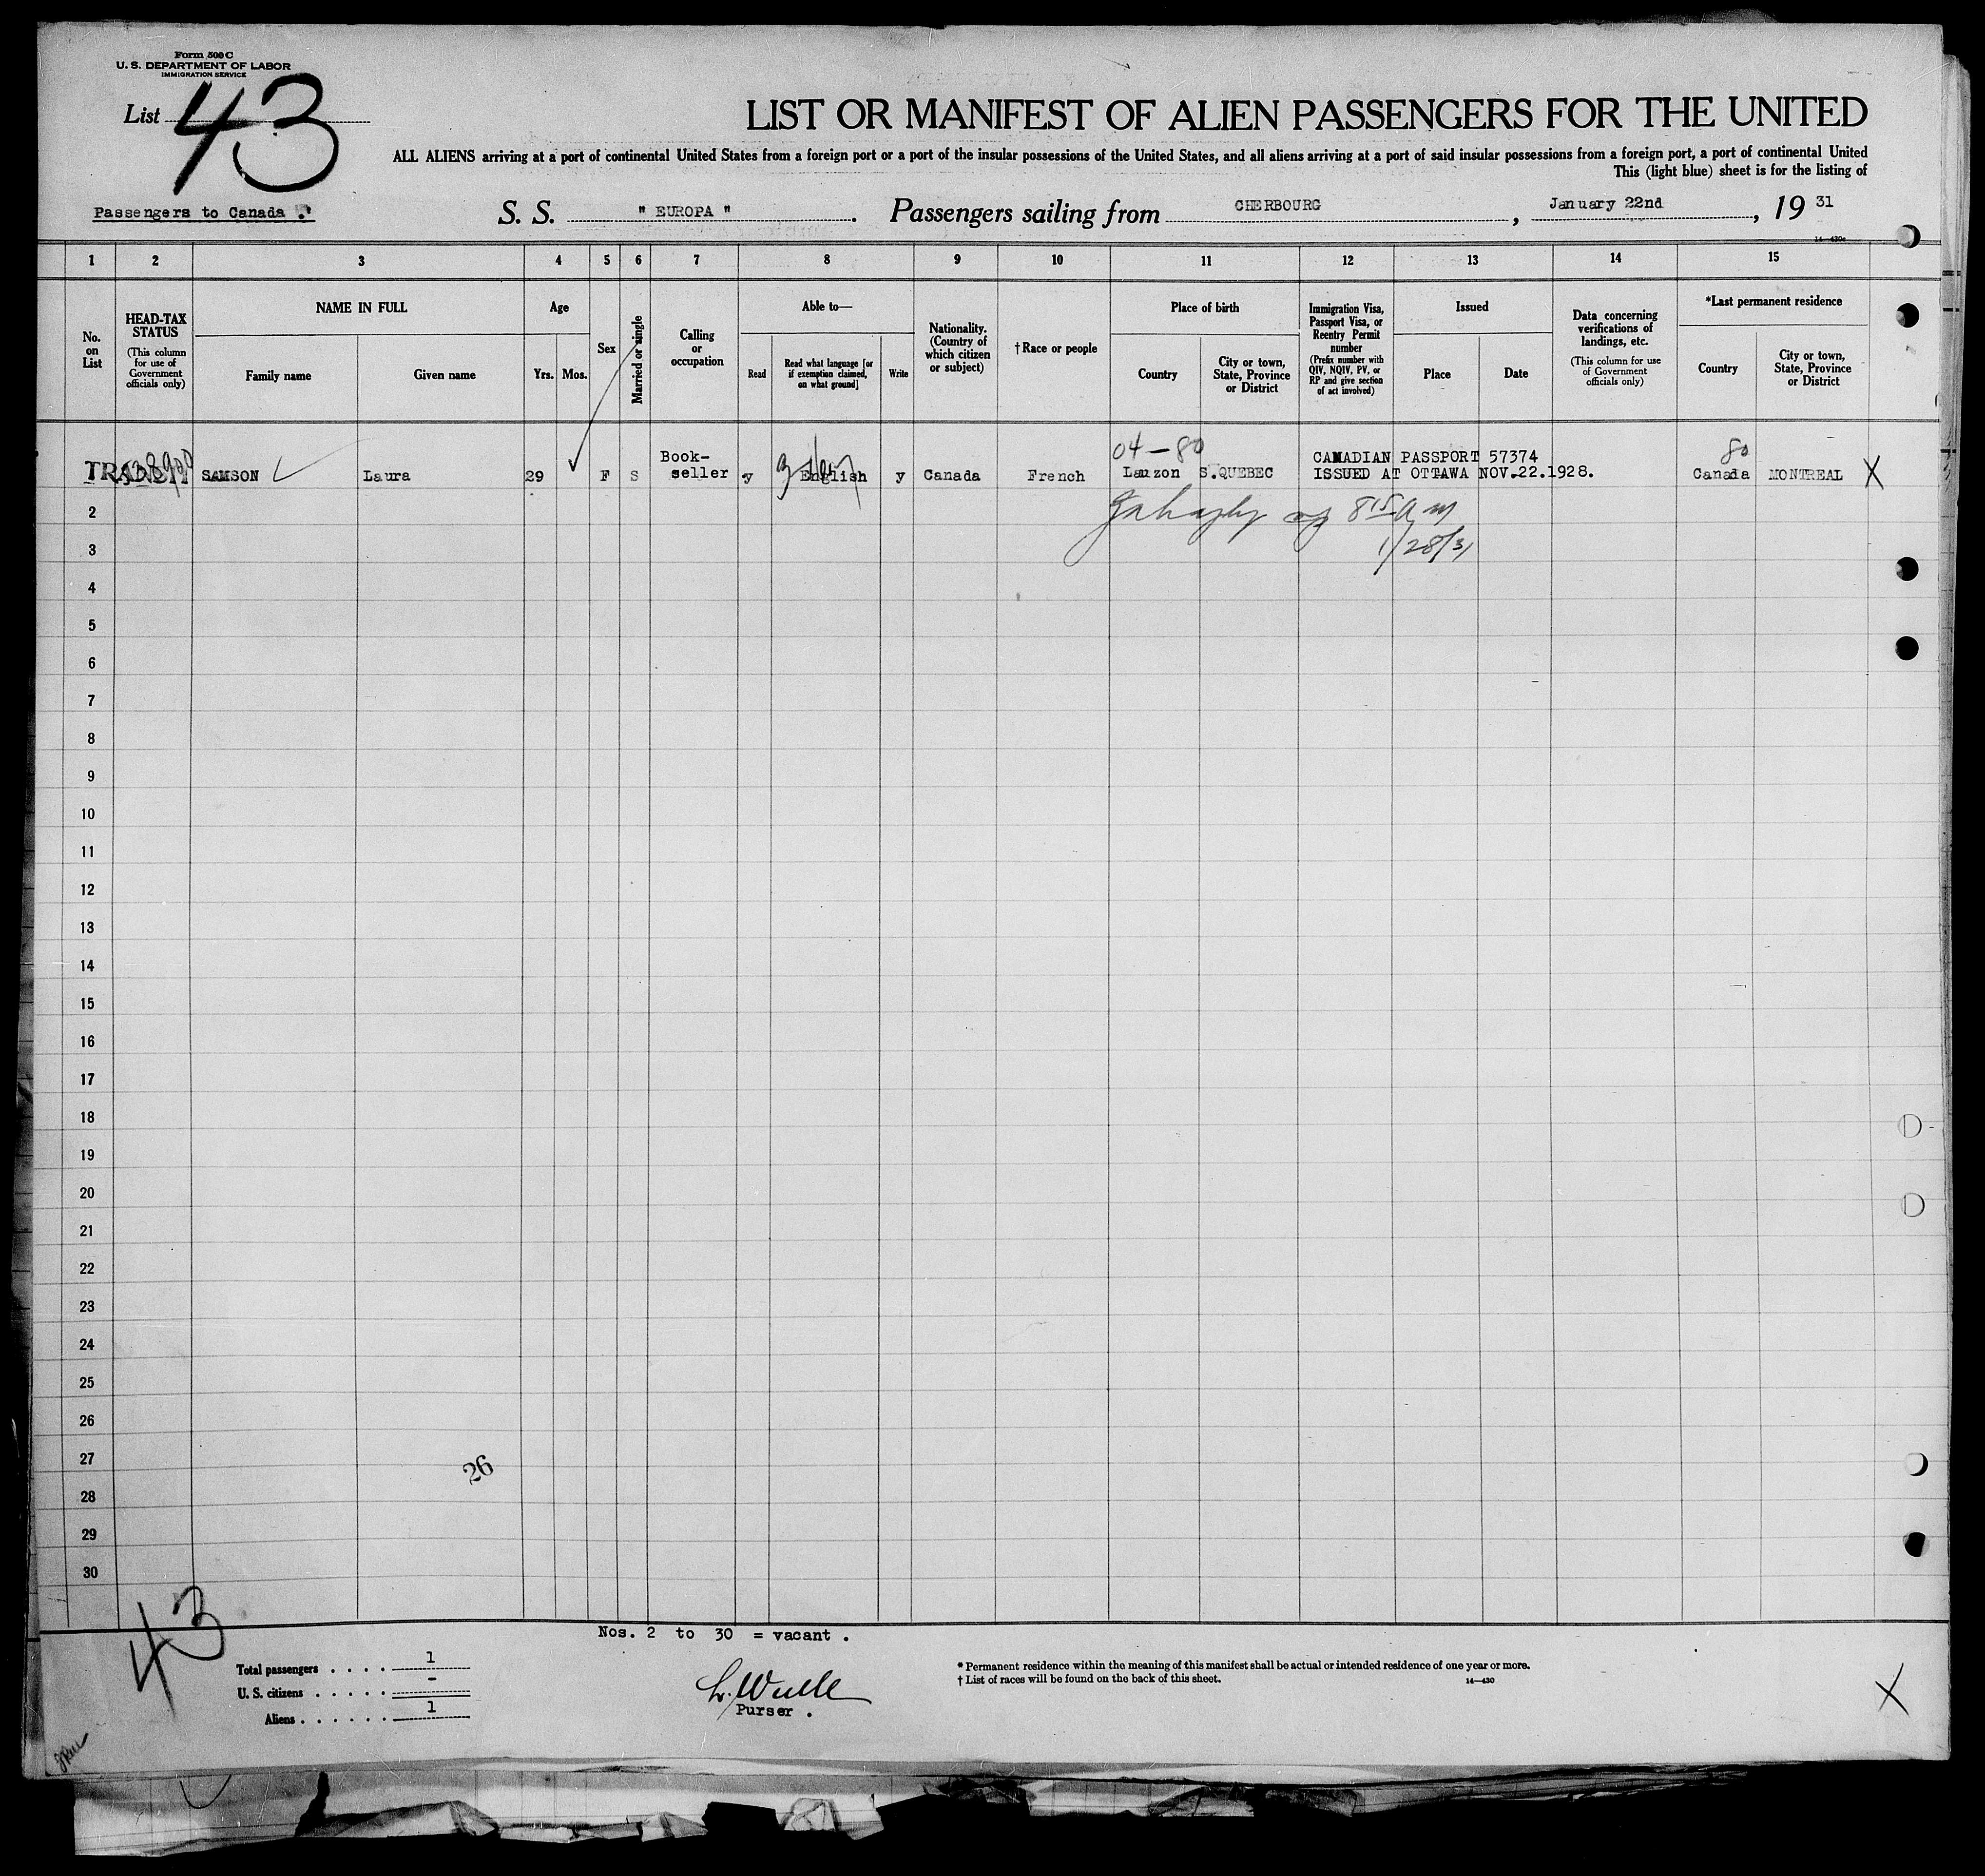 Form 500 C
U. S. DEPARTMENT OF LABOR
IMMIGRATION SERVICE
List 43
LIST OR MANIFEST OF ALIEN PASSENGERS FOR THE UNITED
ALL ALIENS arriving at a port of continental United States from a foreign port or a port of the insular possessions of the United States, and all aliens arriving at a port of said insular possessions from a foreign port, a port of continental United
This (light blue) sheet is for the listing of
Passengers to Canada . S. S. " EUROPA " . Passengers sailing from CHERBOURG , January 22nd , 19 31
14—430c
1 2 3 4 5 6 7 8 9 10 11 12 13 14 15
No. on List
HEAD-TAX STATUS
(This column for use of Government officials only)
NAME IN FULL
Family name
Given name
Age
Yrs.
Mos.
Sex
Married or single
Calling or occupation
Able to—
Read
Read what language [or if exemption claimed, on what ground]
Write
Nationality. (Country of which citizen or subject)
† Race or people
Place of birth
Country
City or town, State, Province or District
Immigration Visa, Passport Visa, or Reentry Permit number
(Prefix number with QIV, NQIV, PV, or RP and give section of act involved)
Issued
Place
Date
Data concerning verifications of landings, etc.
(This column for use of Government officials only)
*Last permanent residence
Country
City or town, State, Province or District
04—80
80
SAMSON Laura 29 F S Book-seller y English y Canada French Lauzon S.QUEBEC CANADIAN PASSPORT 57374 ISSUED AT OTTAWA NOV.22.1928. Canada MONTREAL X
8 15 A m
1/28/31
2
3
4
5
6
7
8
9
10
11
12
13
14
15
16
17
18
19
20
21
22
23
24
25
26
27
26
28
29
30
43
Nos. 2 to 30 = vacant .
Total passengers . . . . 1
U. S. citizens . . . . . -
Aliens . . . . . . 1
Purser .
* Permanent residence within the meaning of this manifest shall be actual or intended residence of one year or more.
† List of races will be found on the back of this sheet.
14—430
X